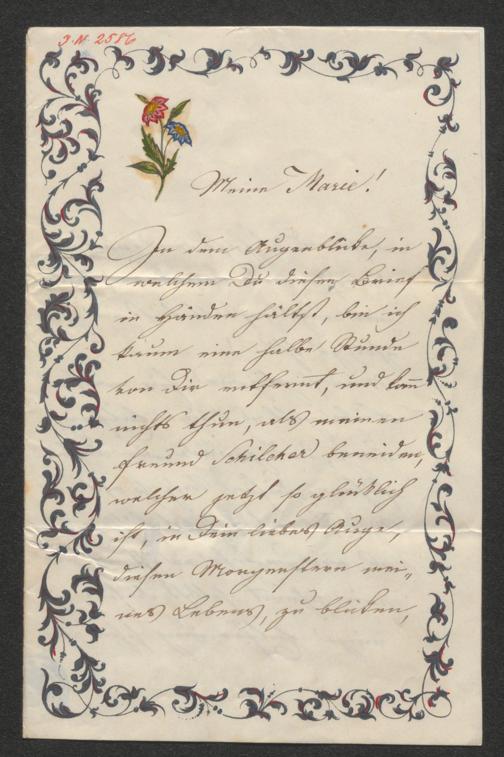 J.N. 2586
Meine Marie!
In dem Augenblicke, in
welchem Du diesen Brief
in Händen hältst, bin ich
kaum eine halbe Stunde
von Dir entfernt, und kann
nichts thun, als meinen
Freund Schilcher beneiden,
welcher jetzt so glücklich
ist, in Dein liebes Auge,
diesen Morgenstern mei„
nes Lebens, zu blicken,